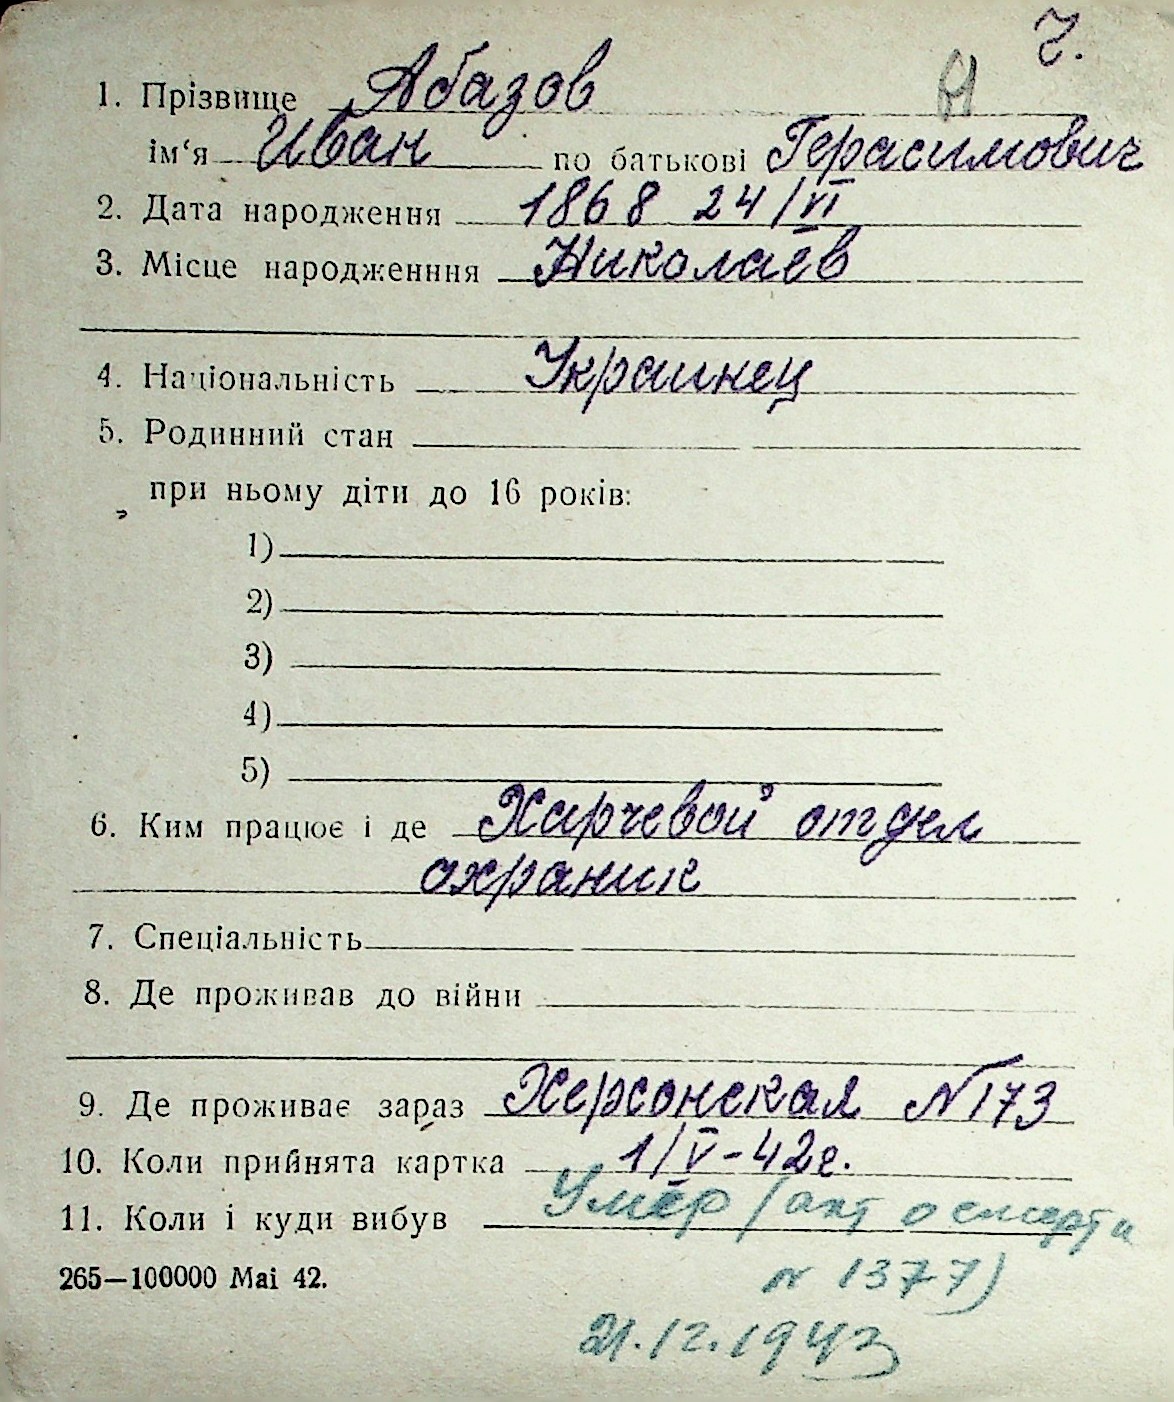 Ч.
Н
1. Прізвище Абазов
ім‘я Иван по батькові Герасимович
2. Дата народження 1868 24/VI
3. Місце народженння Николаев
4. Національність Украинец
5. Родинний стан
при ньому діти до 16 років:
1)
2)
3)
4)
5)
6. Ким працює і де Харчевой отдел
охраник
7. Спеціальність
8. Де проживав до війни
9. Де проживає зараз Херсонская №173
10. Коли прийнята картка 1/V-42г.
11. Коли і куди вибув Умер (акт о смерти
265—100000 Mai 42.
№ 1377)
21.12.1943